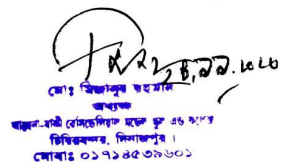 ২৪.১১.২০২০
মোঃ মিজানুর রহমান
অধ্যক্ষ
রেসিডেনসিয়াল মডেল স্কুল এন্ড কলেজ
চিরিরবন্দর, দিনাজপুর ।
মোবাঃ ০১৭১৪৫৩৯৬০১